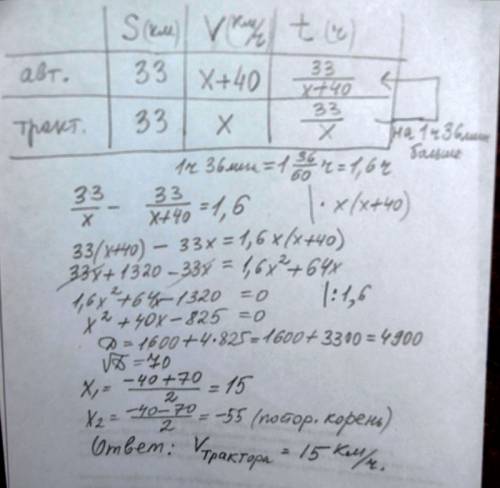 S(км) V(км/ч) t(ч)
авт. 33 x+40 33/(x+40)
тракт. 33 x 33/x
на 1ч 36мин
больше
1ч 36мин = 1 36/60 ч = 1,6ч
33/x - 33/(x+40) = 1,6 |· x(x+40)
33(x+40) - 33x = 1,6x(x+40)
33x + 1320 - 33x = 1,6x² + 64x
1,6x² + 64x - 1320 = 0 |:1,6
x² + 40x - 825 = 0
D = 1600 + 4·825 = 1600 + 3300 = 4900
√D = 70
x₁ = (-40+70)/2 = 15
x₂ = (-40-70)/2 = -55 (постор. корень)
Ответ: Vтрактора = 15 км/ч.